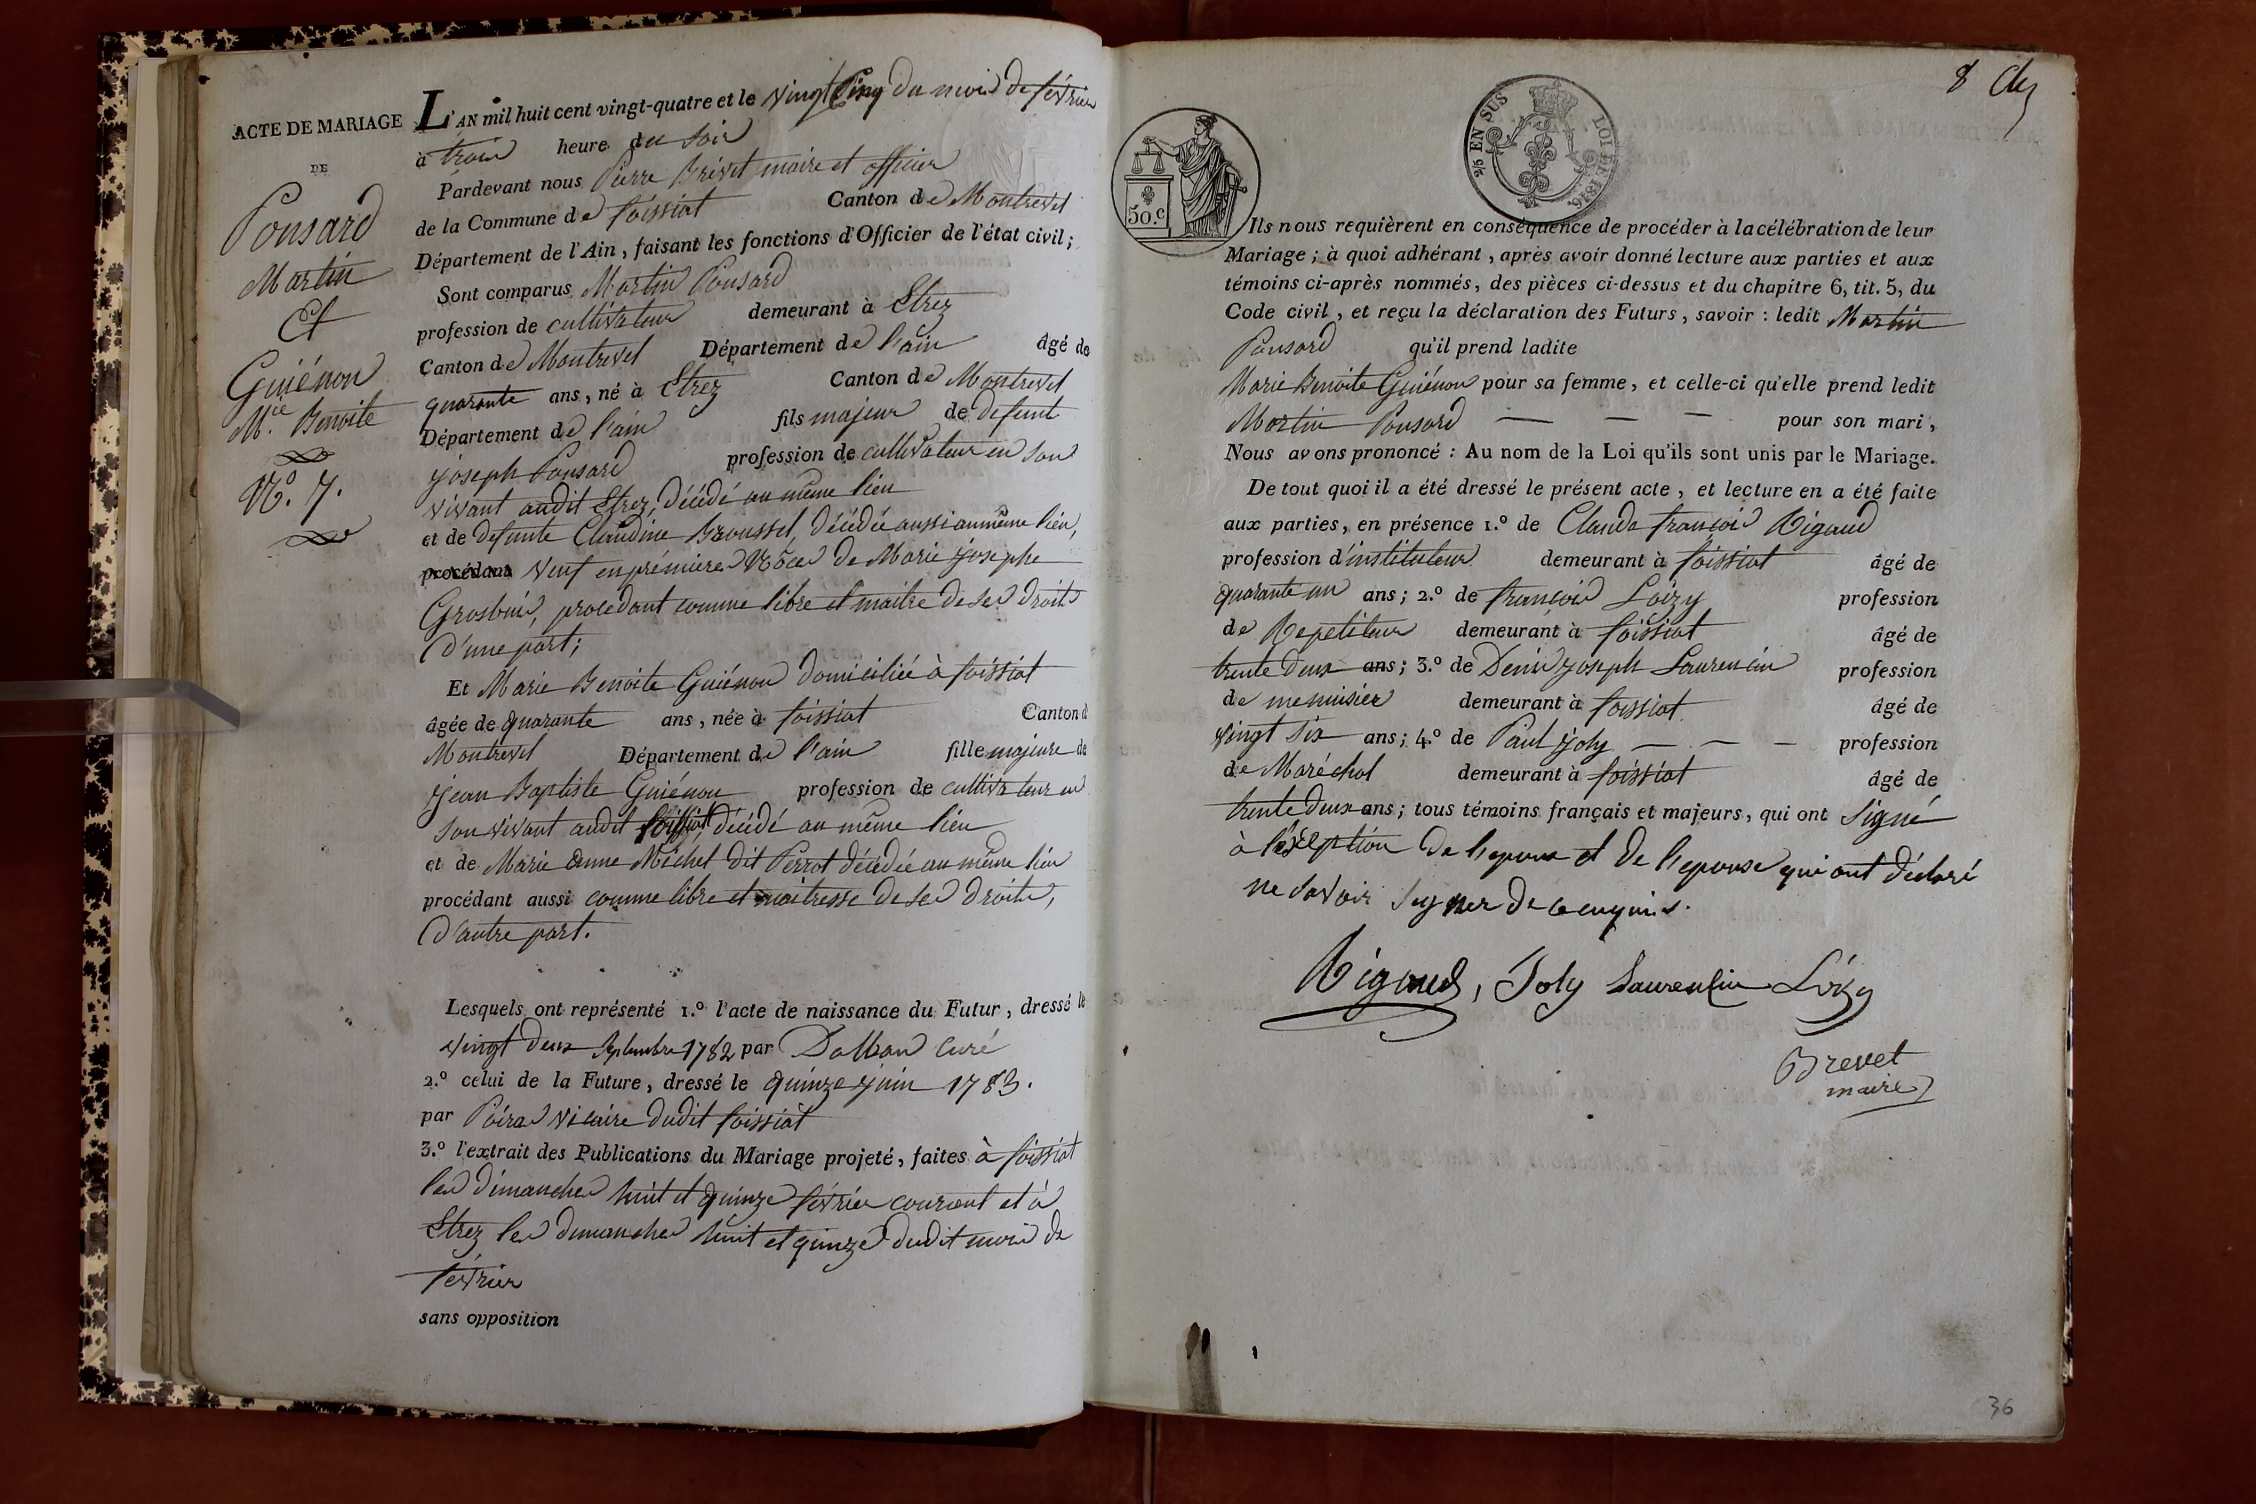 ACTE DE MARIAGE
DE
Ponsard
Martin
Et
Guiénon
M.ie Benoite
N.o 7.
L'AN mil huit cent vingt-quatre et le vingt Cinq du mois de février
à trois heure du soir
Pardevant nous Pierre Brevet maire et officier
de la Commune de foissiat Canton de Montrevel
Département de l'Ain, faisant les fonctions d'Officier de l'état civil;
Sont comparus Martin Ponsard
profession de cultivateur demeurant à Etrez
Canton de Montrevel Département de l'ain âgé de
quarante ans, né à Etrez Canton de Montrevel
Département de l'ain fils majeur de defunt
joseph Ponsard profession de cultivateur en son
vivant audit Etrez, décédé au même lieu
et de defunte Claudine Broussel, décédée aussi au même lieu,
procédant veuf en prémieres Nôces de Marie josephe
Grosbuis, procedant comme libre et maitre de ses droits
d'une part;
Et Marie Benoite Guiénon domiciliée à foissiat
âgée de quarante ans, née à foissiat Canton d
Montrevel Département de l'ain fille majeure de
jean Baptiste Guiénon profession de cultivateur en
son vivant audit foissiat, décédé au même lieu
et de Marie anne Michel dit Perrot décédée au même lieu
procédant aussi comme libre et maitresse de ses droits,
d'autre part.
Lesquels ont représenté 1.o l'acte de naissance du Futur, dressé le
vingt deux Septembre 1782 par Dalban curé
2.o celui de la Future, dressé le quinze juin 1783.
par Poira vicaire dudit foissiat
3.o l'extrait des Publications du Mariage projeté, faites à foissiat
les dimanches huit et quinze février courant et à
Etrez les dimanches huit et quinze dudit mois de
février
sans opposition
8
50.c
25 EN SUS
LOI DE 1816.
Ils nous requièrent en conséquence de procéder à la célébration de leur
Mariage; à quoi adhérant, après avoir donné lecture aux parties et aux
témoins ci-après nommés, des pièces ci-dessus et du chapitre 6, tit. 5, du
Code civil, et reçu la déclaration des Futurs, savoir: ledit Martin
Ponsard qu'il prend ladite
Marie Benoite Guiénon pour sa femme, et celle-ci qu'elle prend ledit
Martin Ponsard — — — pour son mari,
Nous avons prononcé: Au nom de la Loi qu'ils sont unis par le Mariage.
De tout quoi il a été dressé le présent acte, et lecture en a été faite
aux parties, en présence 1.o de Claude françois Rigaud
profession d'instituteur demeurant à foissiat âgé de
quarante un ans; 2.o de françois Loizy profession
de Repetiteur demeurant à foissiat âgé de
trente deux ans; 3.o de Denis joseph Laurencin profession
de menuisier demeurant à foissiat âgé de
vingt six ans; 4.o de Paul joly — — — profession
de Maréchal demeurant à foissiat âgé de
trente deux ans; tous témoins français et majeurs, qui ont signé
à l'éxception de l'epoux et de l'epouse qui ont déclaré
ne savoir signer de ce enquis.
Rigaud, Joly Laurencin Loizy
Brevet
maire
36